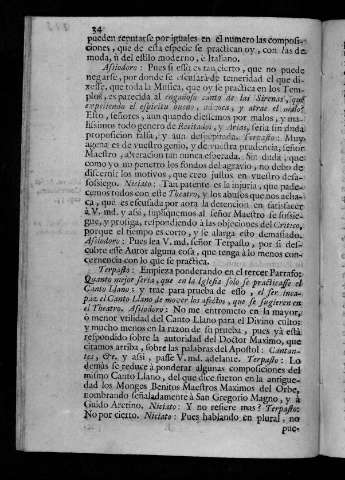 34
pueden reputarse por iguales en el numero las composi-
ciones, que de esta especie se practican oy, con las de
moda, ù del estilo moderno, è Italiano.
Assiodoro: Pues si esso es tan cierto, que no puede
negarse, por donde se escusarà de temeridad el que di-
xesse, que toda la Musica, que oy se practica en los Tem-
plos, es parecida al engañoso canto de las Sirenas, que
expeliendo el espiritu bueno, introduce, y atrae el malo?
Esto, señores, aun quando diessemos por malos, y ma-
lissimos todo genero de Recitados, y Arias, seria sin duda
proposicion falsa, y aun despropositada. Terpasto: Muy
agena es de vuestro genio, y de vuestra prudencia, señor
Maestro, alteracion tan nunca esperada. Sin duda, que
como yo no penetro los fondos del agravio, no debo de
discernir los motivos, que creo justos en vuestro desa-
sossiego. Niciato: Tan patente es la injuria, que pade-
cemos todos con este Theatro, y los abusos que nos acha-
ca, que es escusada por aora la detencion en satisfacer
à V. md. y assi, supliquemos al señor Maestro se sossie-
gue, y prosiga, respondiendo à las objeciones del Critico,
porque el tiempo es corto, y se alarga esto demasiado.
Assiodoro: Pues lea V. md. señor Terpasto, por si des-
cubre esse Autor alguna cosa, que tenga à lo menos con-
cernencia con lo que se practica.
Terpasto: Empieza ponderando en el tercer Parrafo:
Quanto mejor seria, que en la Iglesia solo se practicasse el
Canto Llano: y trae para prueba de esso, el ser inca-
paz el Canto Llano de mover los afectos, que se sugieren en
el Theatro. Assiodoro: No me entrometo en la mayor,
ò menor utilidad del Canto Llano para el Divino culto:
y mucho menos en la razon de su prueba, pues yà està
respondido sobre la autoridad del Doctor Maximo, que
citamos arriba, sobre las palabras del Apostol: Cantan-
tes, &c. y assi, passe V. md. adelante. Terpasto: Lo
demàs se reduce à ponderar algunas composiciones del
mismo Canto Llano, del que dice fueron en la antigue-
dad los Monges Benitos Maestros Maximos del Orbe,
nombrando señaladamente à San Gregorio Magno, y à
Guido Aretino. Niciato: Y no refiere mas? Terpasto:
No por cierto. Niciato: Pues hablando en plural, no
pue-